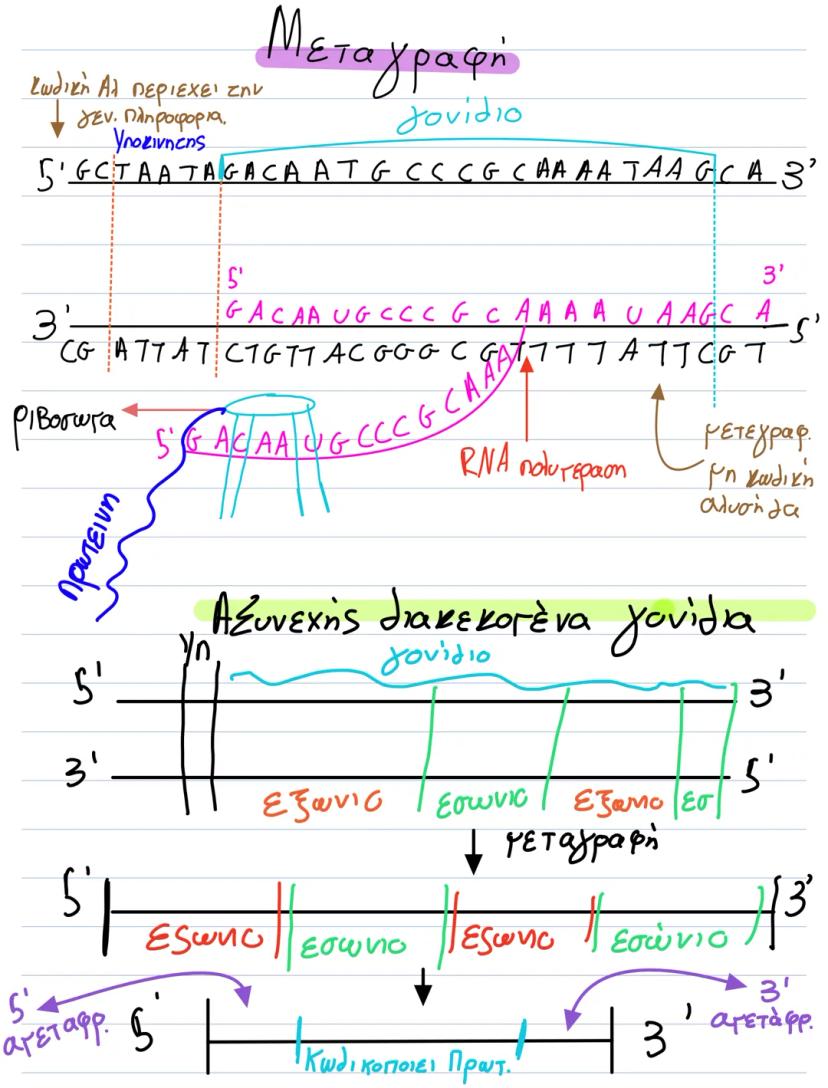 Μεταγραφή
κωδική Αλ περιεχει την
γεν. πληροφορια.
Υποκινητης
γονίδιο
5' GCTAATAGACAATGCCCGCAAAATAAGCA 3'
5' 3'
GACAAUGCCCGCAAAAUAAGCA
3' 5'
CGATTATCTGTTACGGGCGTTTTATTCGT
ριβοσωμα
5' GACAAUGCCCGCAAAA
RNA πολυμεραση
μετεγραφ.
μη κωδική
αλυσήδα
πρωτεινη
Ασυνεχής διακεκομένα γονίδια
Υπ
γονίδιο
5' 3'
3' 5'
εξωνιο εσωνιο εξωνιο εσ
μεταγραφή
5' 3'
εξωνιο εσωνιο εξωνιο εσώνιο
5' αμεταφρ.
5' 3'
3' αμετάφρ.
Κωδικοποιει Πρωτ.